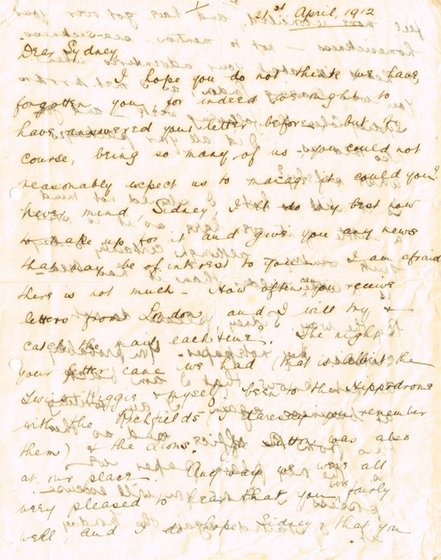 21st April, 1912
Dear Sydney
I hope you do not think we have
forgotten you for indeed we ought to
have answered your letter before but of
course, being so many of us you could not
reasonably expect us to manage it could you?
Never mind, Sidney, I'll do my best now
to make up for it and give you any news
that may be of interest to you. I am afraid
there is not much. How often can you receive
letters from London, and I will try &
catch the mail each time. The night
your letter came we had (that is Albert the
& myself) been to the Hippodrome
with the (I daresay you remember
them) & the was also
at our place. Any way we were all
very pleased to hear that you were fairly
well, and I do hope Sidney that you